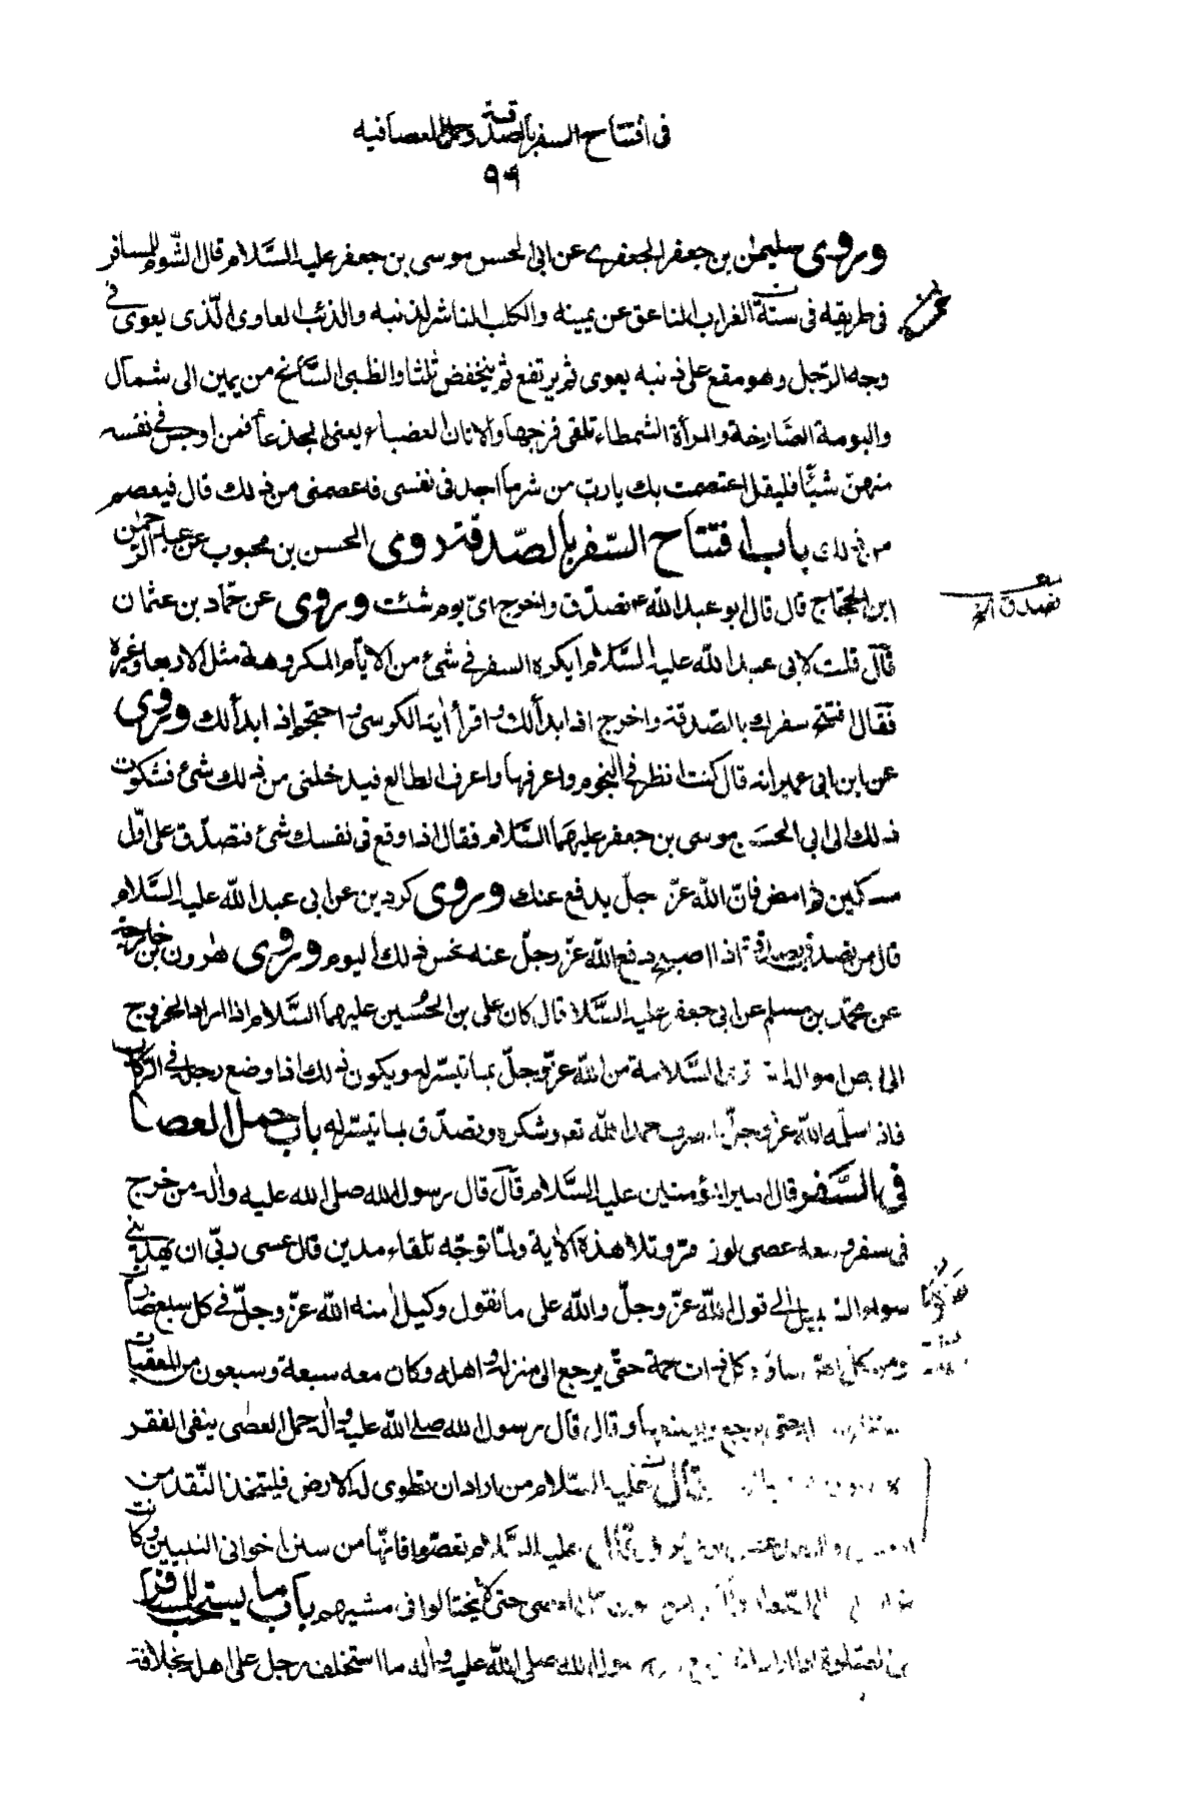 فى افتتاح السفر بالصدقة وحمل العصا فيه
٩٦
وروى سليمان بن جعفر الجعفرى عن ابى الحسن موسى بن جعفر عليه السَّلام قال الشّوم للمسافر
فى طريقه فى ستة الغراب الناعق عن يمينه والكلب الناشر لذنبه والذئب العاوى الّذى يعوى فى
وجه الرّجل وهو مقع على ذنبه يعوى ثم يرتفع ثم ينخفض ثلثا والظبى السَّانح من يمين الى شمال
والبومة الصَّارخة والمرأة الشمطاء تلقى فرجها والاتان العضباء يعنى الجذعاء فمن اوجس فى نفسه
منهنّ شيئًا فليقل اعتصمت بك يا ربّ من شر ما اجد فى نفسى فاعصمنى من ذلك قال فيعصم
من ذلك باب افتتاح السّفر بالصّدقة روى الحسن بن محبوب عن عبد الرحمن
ابن الحجّاج قال قال ابو عبد الله ع تصدّق واخرج اىّ يوم شئت وروى عن حمّاد بن عثمان
قال قلت لابى عبد الله عليه السَّلام ايكره السفر فى شئ من الايّام المكروهة مثل الاربعا وغيره
فقال افتتح سفرك بالصّدقة واخرج اذا بدا لك واقرأ اية الكوسى واحتجم اذا بدا لك وروى
عن ابن ابى عمير انه قال كنت انظر فى النجوم واعرفها واعرف الطالع فيدخلنى من ذلك شئ فشكوت
ذلك الى ابى الحسن موسى بن جعفر عليهما السَّلام فقال اذا وقع فى نفسك شئ فتصدّق على اوّل
مسكين ثم امض فانّ الله عزّ وجلّ يدفع عنك وروى كردين عن ابى عبد الله عليه السَّلام
قال من تصدق بصدقة اذا اصبح دفع الله عزّ وجلّ عنه نحس ذلك اليوم وروى هارون بن خارجة
عن محمّد بن مسلم عن ابى جعفر عليه السَّلا قال كان على بن الحُسين عليهما السَّلام اذا اراد الخروج
الى بعض امواله اشترى السَّلامة من الله عزّ وجلّ بما تيسّر له ويكون ذلك اذا وضع رجله فى الركاب
فاذا سلّمه الله عزّ وجلّ انصرف حمد الله تعه وشكره وتصدّق بما تيسّر له باب حمل العصا
فى السَّفر قال امير المؤمنين عليه السَّلام قال قال رسول الله صلى الله عليه واله من خرج
فى سفر ومعه عصى لوز مرّ وتلا هذه الاية ولمّا توجّه تلقاء مدين قال عسى ربّى ان يهدينى
سواء السبيل الى قول الله عزّ وجلّ والله على ما نقول وكيل امنه الله عزّ وجلّ فى كل سبع ضار
ومن كل لصّ عاد وكل ذات حمة حتّى يرجع الى منزله واهله وكان معه سبعة وسبعون من المعقبات
حتى يرجع ويضعها وقال قال رسول الله صلى الله عليه واله حمل العصى ينفى الفقر
وقال عليه السّلام من اراد ان تطوى له الارض فليتخذ النّقد من
عليه السَّلام تعصّوا فانّها من سنن اخوانى النبيين وكانت
حتى لا يختالوا فى مشيهم باب ما يستحب للمسافر
من الصلوة اذا اراد الخروج رسول الله صلى الله عليه واله ما استخلف رجل على اهله بخلافة
تصدق الخ